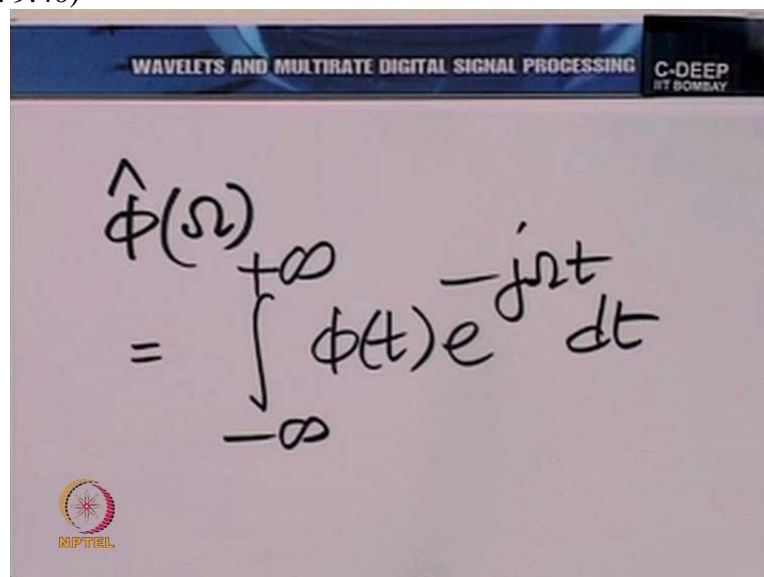 9:40)
WAVELETS AND MULTIRATE DIGITAL SIGNAL PROCESSING
C-DEEP
IIT BOMBAY
φ̂(Ω)
= ∫_{-∞}^{+∞} φ(t) e^{-jΩt} dt
NPTEL